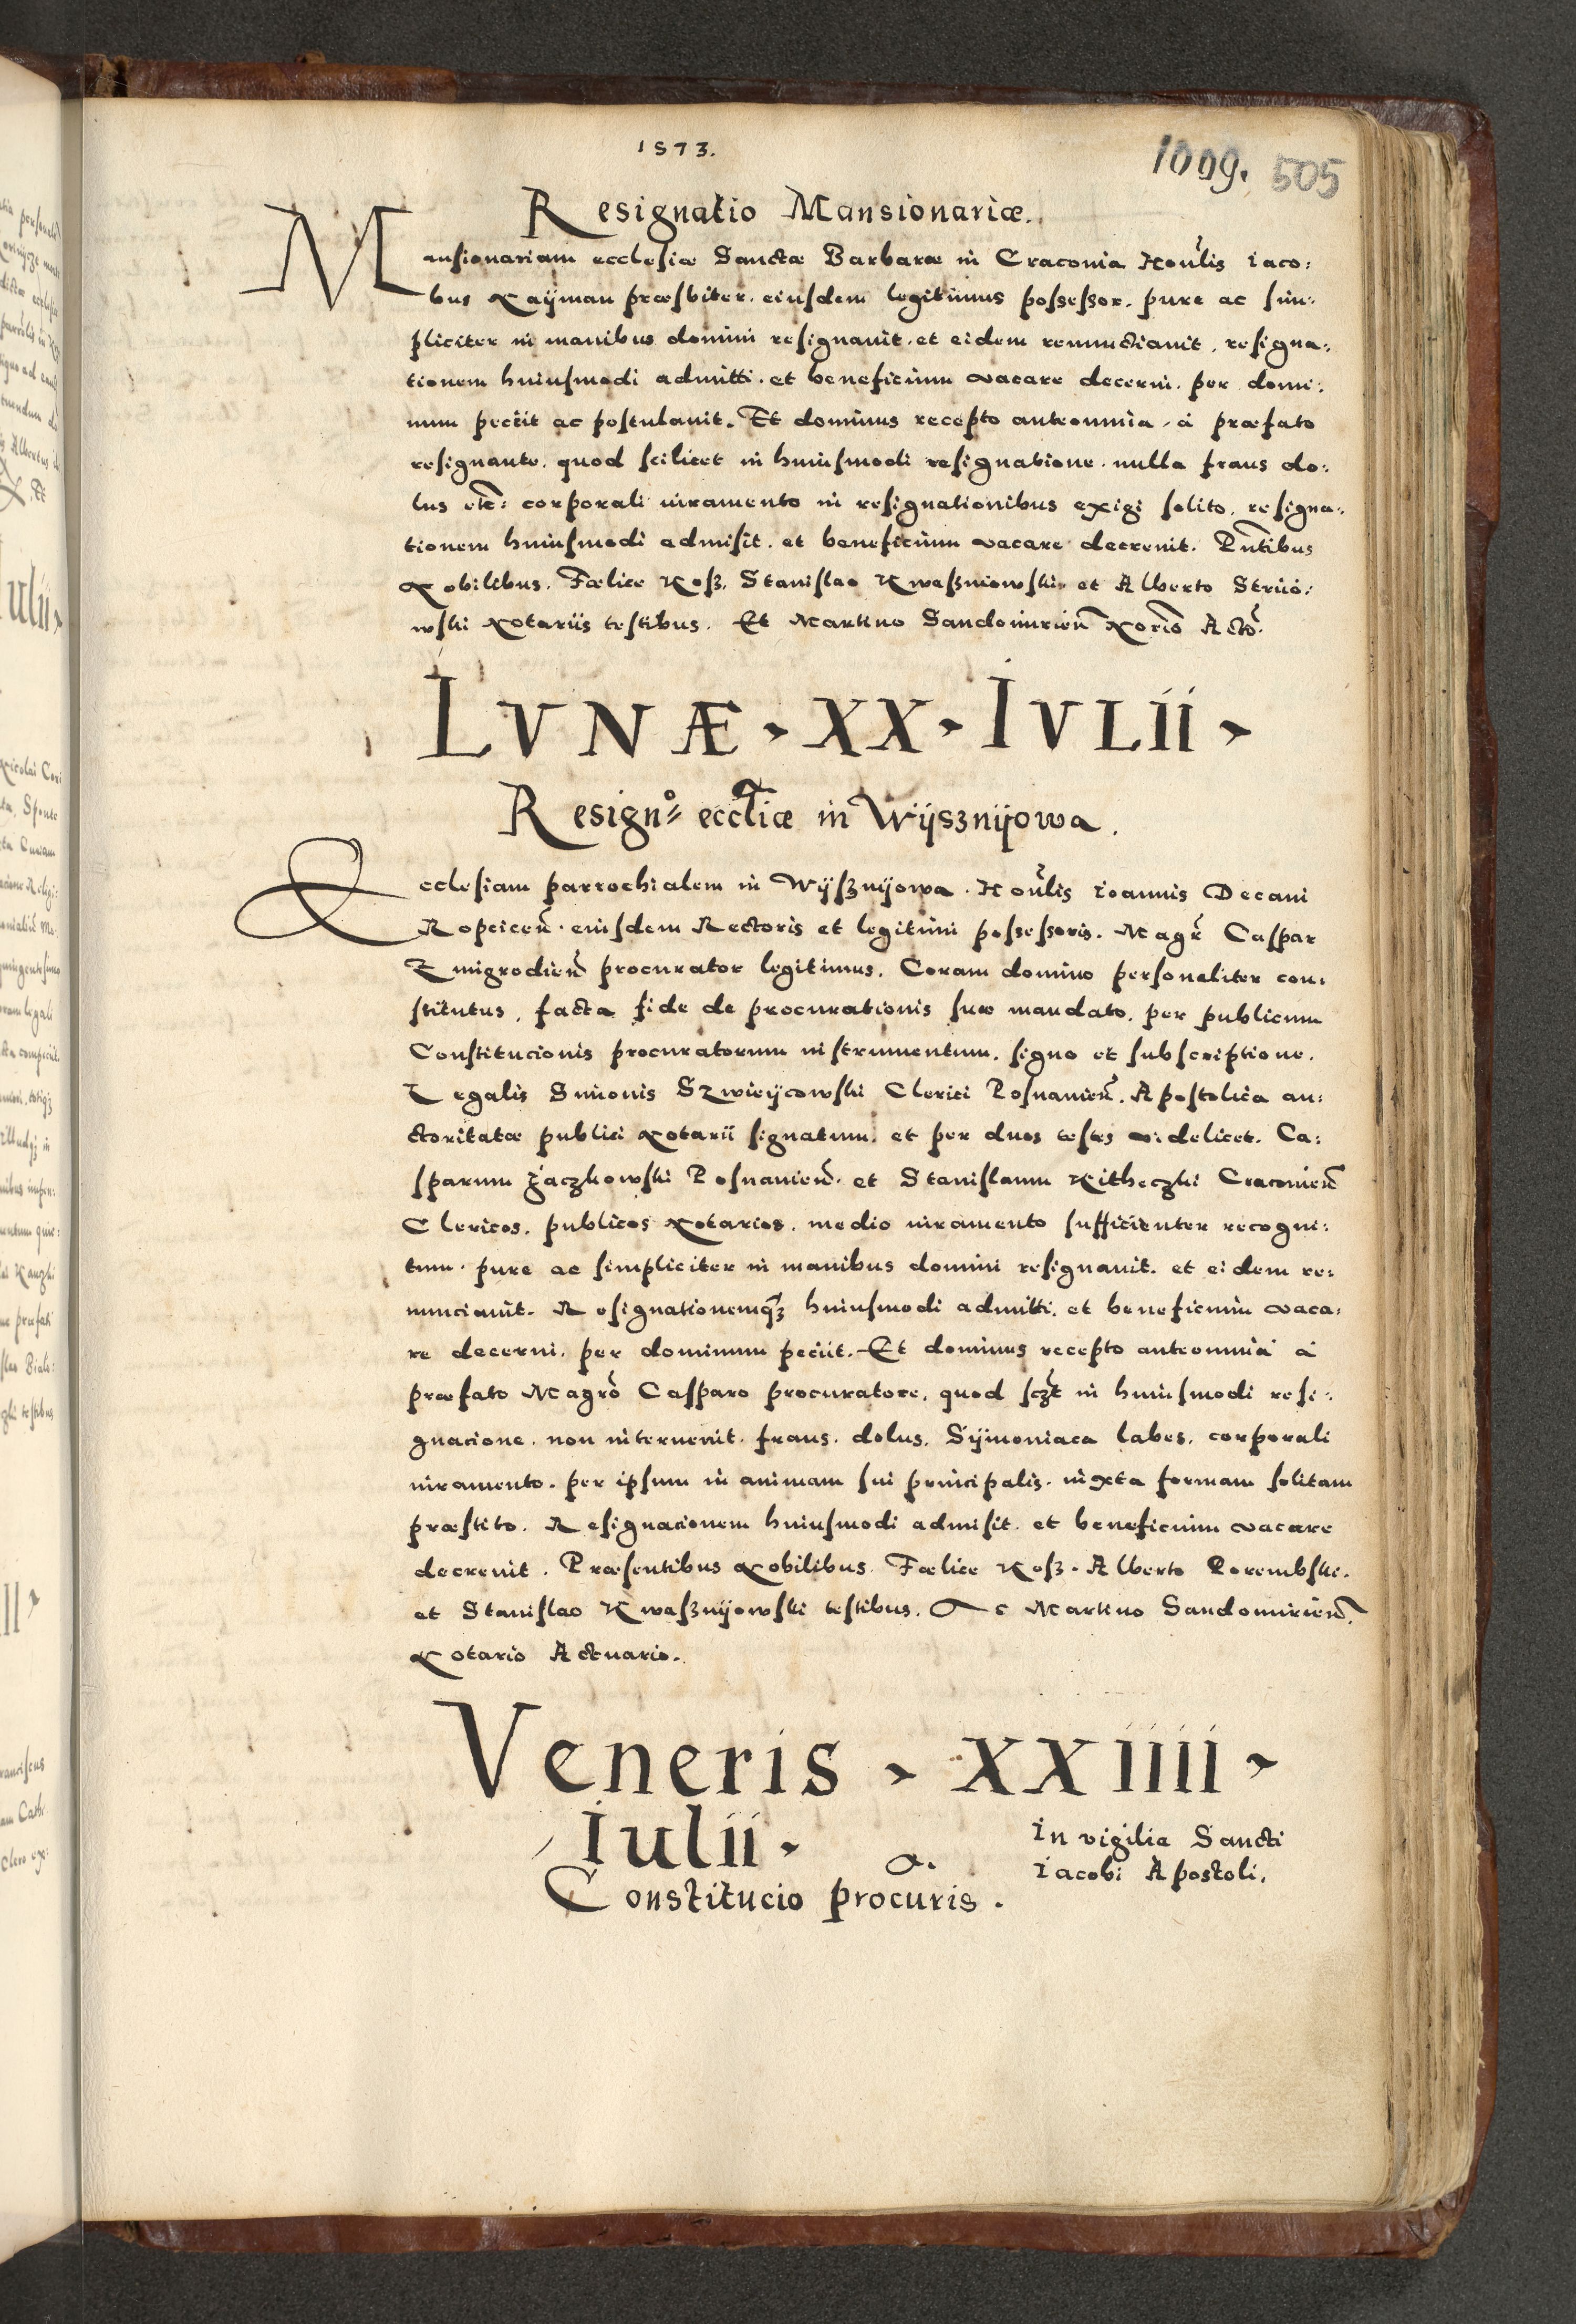 1573.
1009. 505
Resignatio Mansionariæ.
Mansionariam ecclesiæ Sanctæ Barbaræ in Craconia Honlis iaco:
bus Naÿman præsbiter. eiusdem legitimus possessor. pure ac sim:
pliciter in manibus domini resignauit. et eidem renunctiauit, resigna:
tionem huiusmodi admitti. et beneficium vacare decerni. per domi:
num peciit ac postulauit. Et dominus recepto anteomnia, á præfato
resignante. quod scilicet in huiusmodi resignatione. nulla fraus do:
lus etc: corporali iuramento in resignationibus exigi solito, resigna:
tionem huiusmodi admisit. et beneficium vacare decreuit. Pntibus
Nobilibus. Fœlice Kosz. Stanislao Kwaszniowski. et Alberto Struio:
wski Notariis testibus. Et Martino Sandomirien Norio Acto.
LVNÆ · XX · IVLII ·
Resigno ecclíæ in Wÿsznÿowa.
Ecclesiam parrochialem in Wÿsznÿowa. Honlis ioannis Decani
Ropcicen. eiusdem Rectoris et legitimi possessoris. Magr Caspar
Zmigrodien procurator legitimus. Coram domino personaliter con:
stitutus, facta fide de procurationis suæ mandato. per publicum
Constitucionis procuratorum instrumentum. signo et subscriptione.
Legalis Simonis Szwieÿcowski Clerici Posnanien. Apostolica au:
ctoritatæ publici Notarii signatum. et per duos testes videlicet. Ca:
sparum Zaczkowski Posnanien. et Stanislaum Kitheczki Cracouien
Clericos. publicos Notarios. medio iuramento sufficienter recogni:
tum. pure ac simpliciter in manibus domini resignauit. et eidem re:
nunciauit. Resignationemqz huiusmodi admitti. et beneficium vaca:
re decerni. per dominum peciit. Et dominus recepto anteomnia á
præfato Magro Casparo procuratore. quod sczt in huiusmodi resi:
gnacione. non interuenit. fraus. dolus. Sÿmoniaca labes. corporali
iuramento. per ipsum in animam sui principalis. iuxta formam solitam
præstito. Resignacionem huiusmodi admisit. et beneficium vacare
decreuit. Præsentibus Nobilibus. Fœlice Kosz. Alberto Porembski.
et Stanislao Kwasznÿowski testibus. Ac Martino Sandomirien.
Notario Actuario.
Veneris · XXIIII ·
Iulii ·
In vigilia Sancti
iacobi Apostoli.
Constitucio procuris.